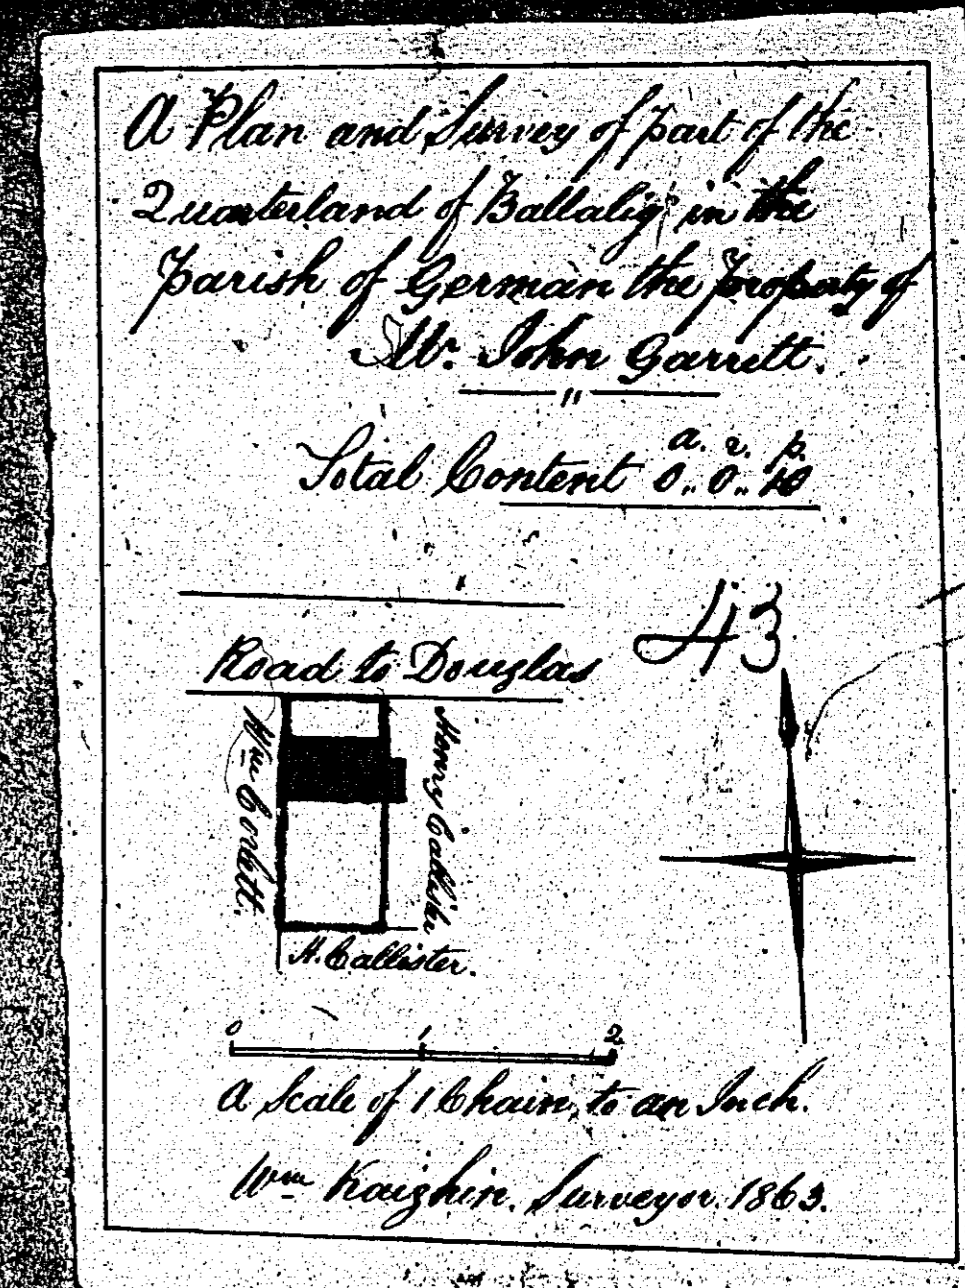 A Plan and Survey of part of the
Quarterland of Ballalig in the
Parish of German the property of
Mr. John Garrett.
"
a. r. p.
Total Content 0,, 0,, 10
43
Road to Douglas
Wm Corlett.
Henry Callister
H. Callister.
0 1 2
A Scale of 1 Chain, to an Inch.
Wm Kaighin. Surveyor. 1863.